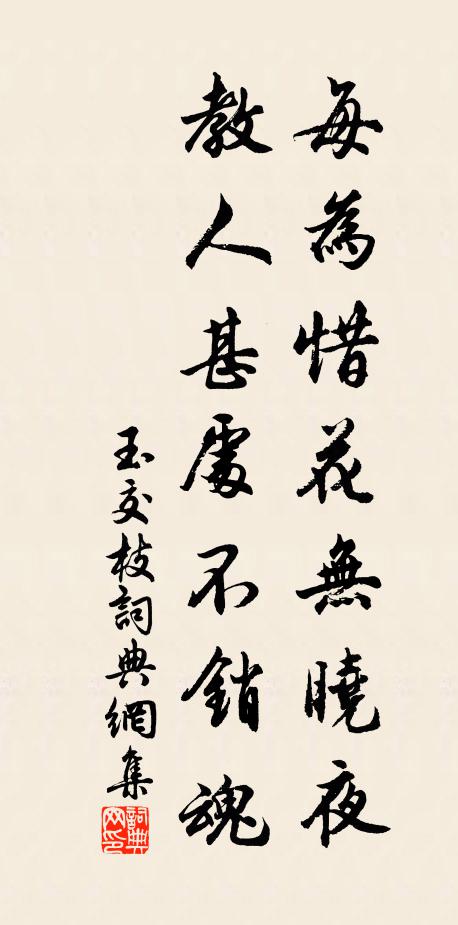 每為惜花無曉夜
教人甚處不銷魂
玉交枝詞典網集
詞典网印